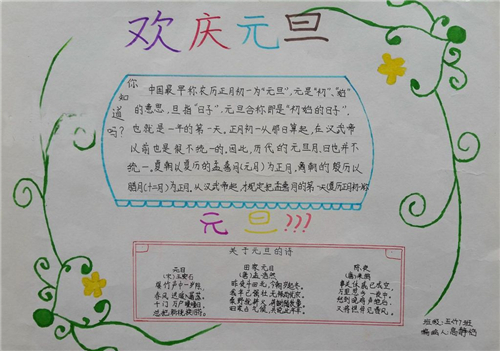 欢庆元旦
你知道吗?
中国最早称农历正月初一为"元旦",元是"初"、"始"
的意思,旦指"日子",元旦合称即是"初始的日子",
也就是一年的第一天。正月初一从那日算起,在汉武帝
以前也是很不统一的。因此,历代的元旦月、日也并不
统一。夏朝以夏历的孟喜月(元月)为正月,商朝的殷历以
腊月(十二月)为正月。从汉武帝起,才规定把孟喜月的第一天(夏历正月初
元旦???
关于元旦的诗
元日
(宋)王安石
爆竹声中一岁除,
春风送暖入屠苏。
千门万户曈曈日,
总把新桃换旧符。
田家元日
(唐)孟浩然
昨夜斗回北,今朝岁起东。
我年已强仕,无禄尚忧农。
田家占气候,共说此年丰。
除夜
(唐)来鹄
事关休戚已成空,
万里相思一夜中。
愁到晓鸡声绝后,
又将憔悴见春风。
班级:五(7)班
编辑人: